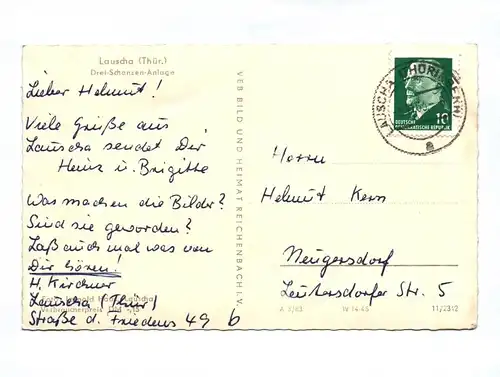 Lauscha (Thür.)
Drei-Schanzen-Anlage
Lieber Helmut!
Viele Grüße aus
Lauscha sendet Dir
Heinz u. Brigitte
Was machen die Bilder?
Sind sie geworden?
Laß auch mal was von
Dir hören!
H. Kirchner
Lauscha (Thür)
Straße d. Friedens 49 b
Verbraucherpreis
VEB BILD UND HEIMAT REICHENBACH I. V.
LAUSCHA (THÜR
a
DEUTSCHE
DEMOKRATISCHE REPUBLIK
10
Herrn
Helmut Kern
Neugersdorf
Leutersdorfer Str. 5
IV-14-45
11/2312